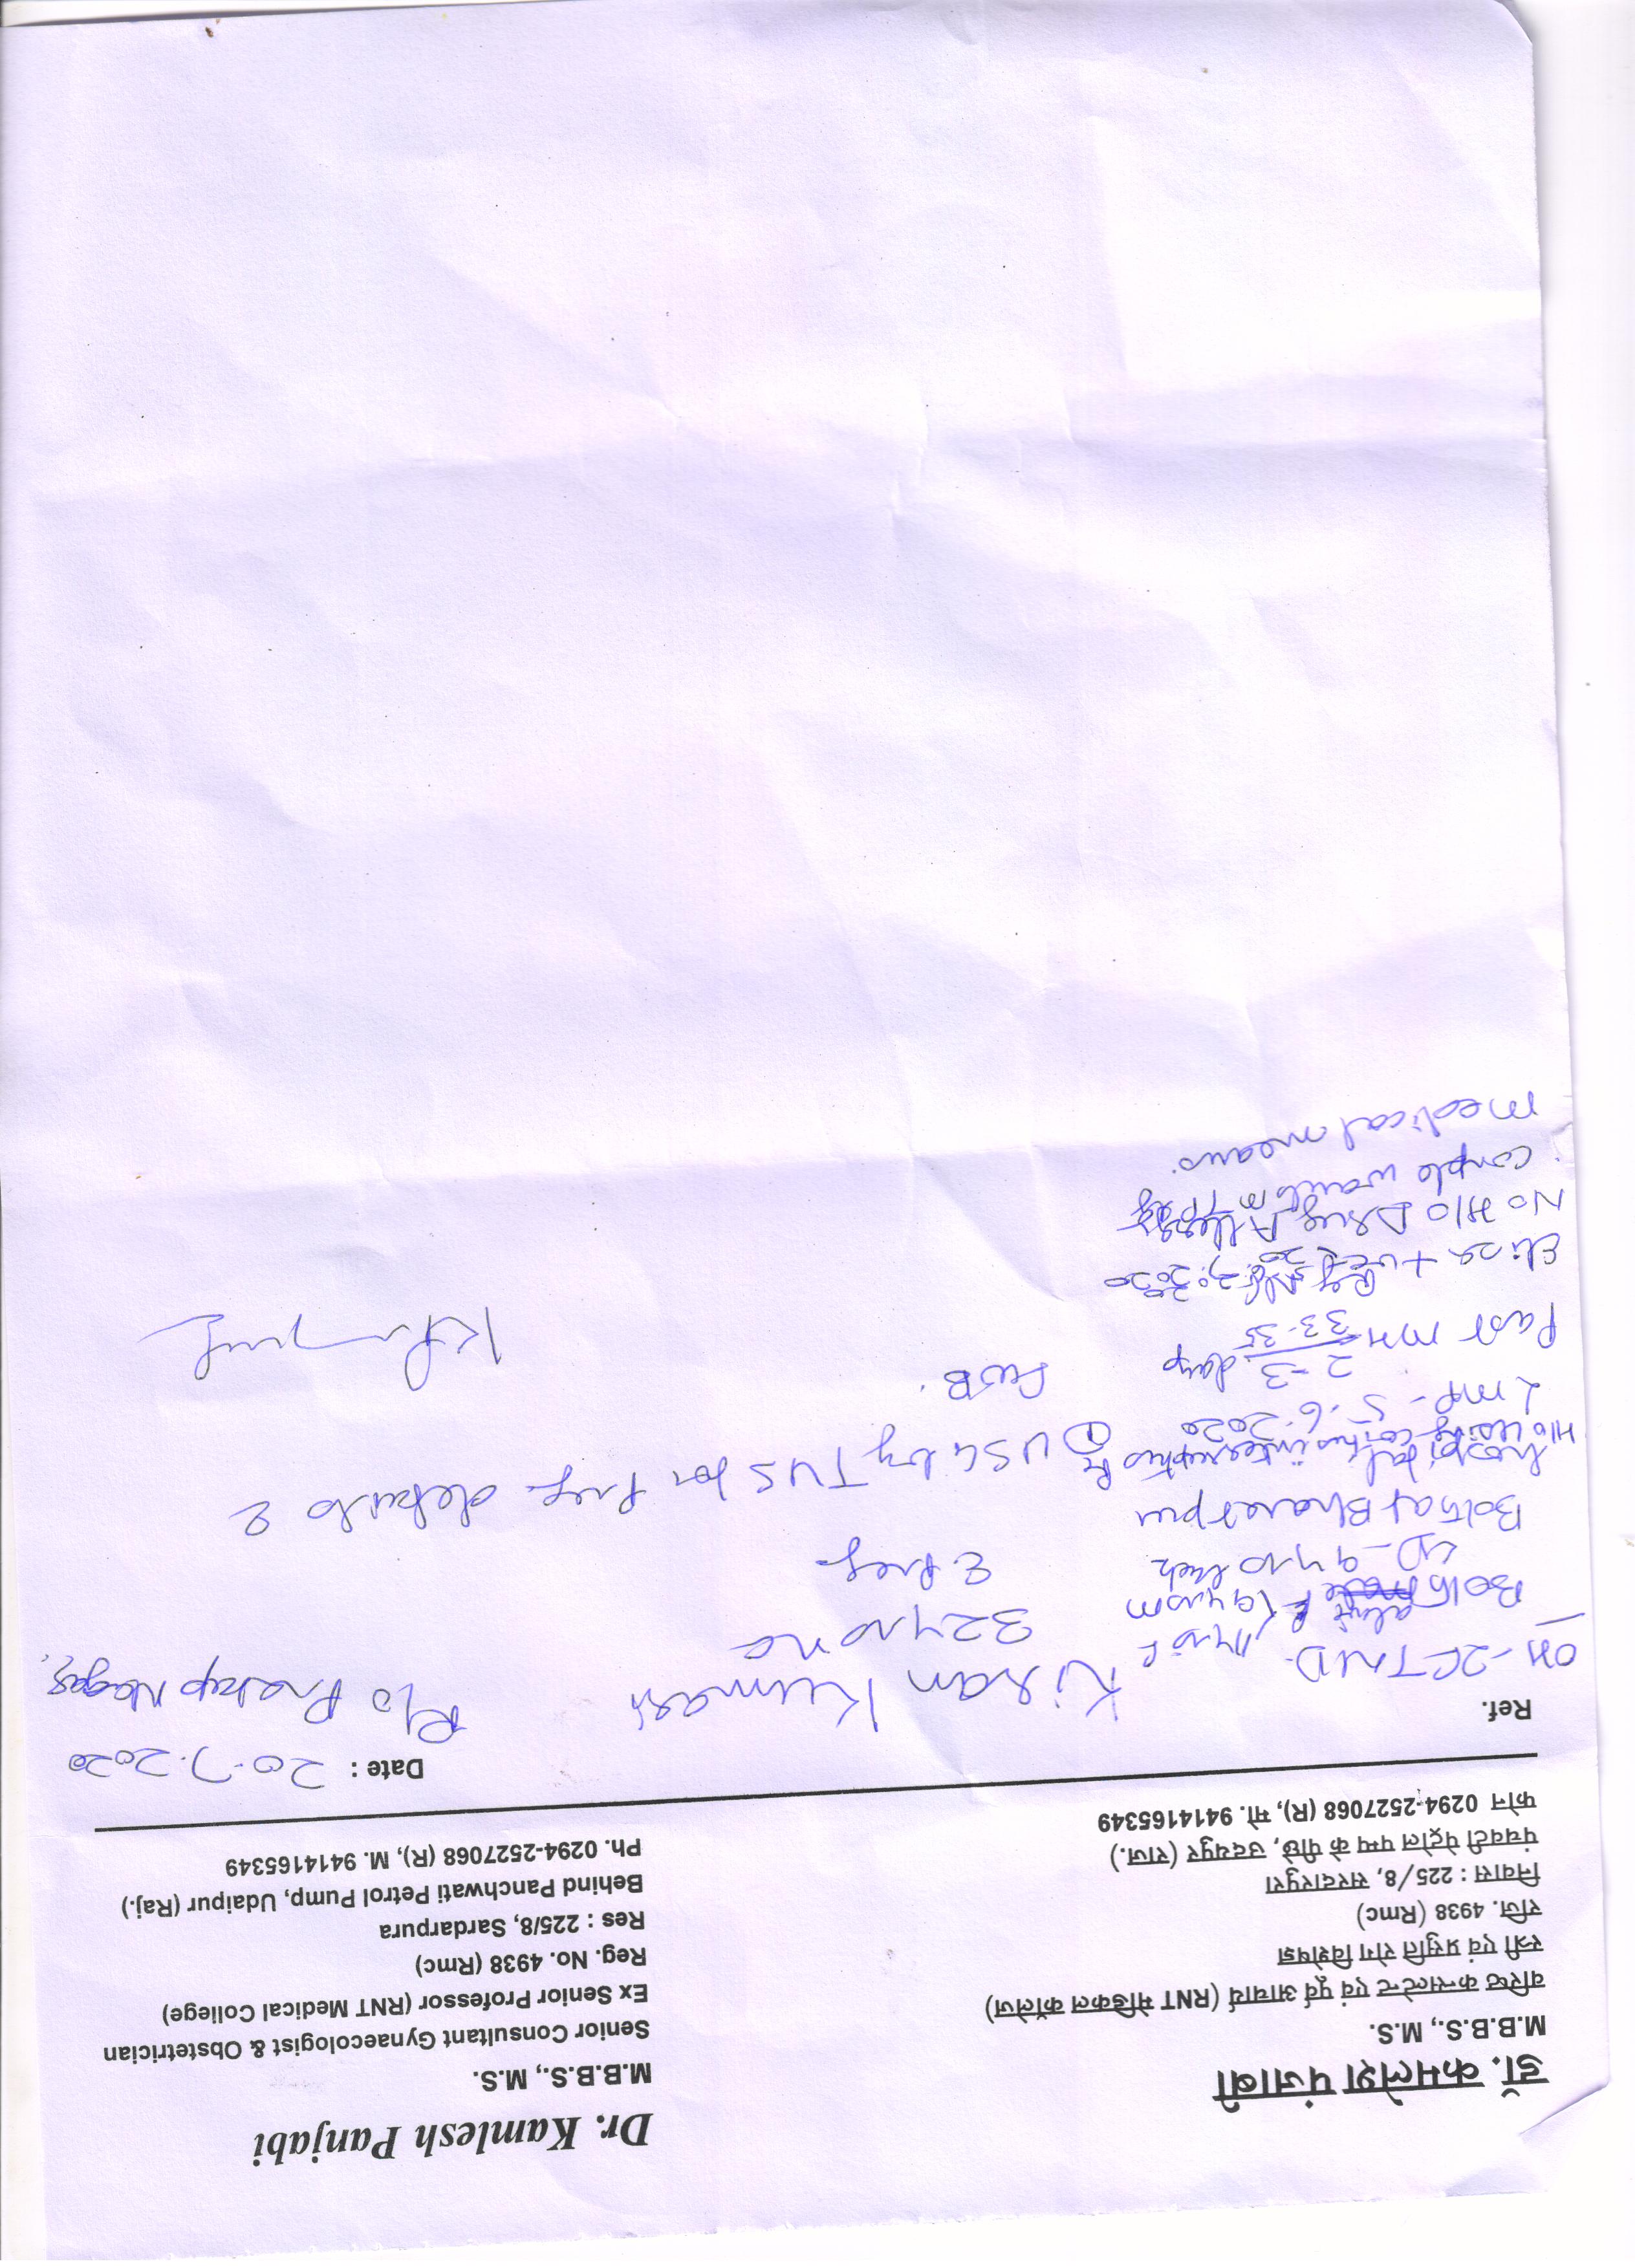 डॉ. कमलेश पंजाबी
M.B.B.S., M.S.
वरिष्ठ कन्सल्टेन्ट एवं पूर्व आचार्य (RNT मेडिकल कॉलेज)
स्त्री एवं प्रसुति रोग विशेषज्ञ
रजि. 4938 (Rmc)
निवास : 225/8, सरदारपुरा
पंचवटी पेट्रोल पम्प के पीछे, उदयपुर (राज.)
फोन 0294-2527068 (R), मो. 9414165349
Dr. Kamlesh Panjabi
M.B.B.S., M.S.
Senior Consultant Gynaecologist & Obstetrician
Ex Senior Professor (RNT Medical College)
Reg. No. 4938 (Rmc)
Res : 225/8, Sardarpura
Behind Panchwati Petrol Pump, Udaipur (Raj.)
Ph. 0294-2527068 (R), M. 9414165349
Ref.
Date : 20.7.2020
Kiran Kumari
R/o Pratap Nagar
32 yrs
E. Preg.
USG by TVS for Preg. details &
FWB.
OH - 2FTND.
Both alive
LD - 9 yrs back
Both at Bharatpur
hospital
H/o using coitus interruptus
LMP - 5.6.2020
Past MH 2-3 days
33-35
Reg
Eliza +ve 20.7.2020
No H/o Drug Allergy
Couple wants MTP by
medical means.